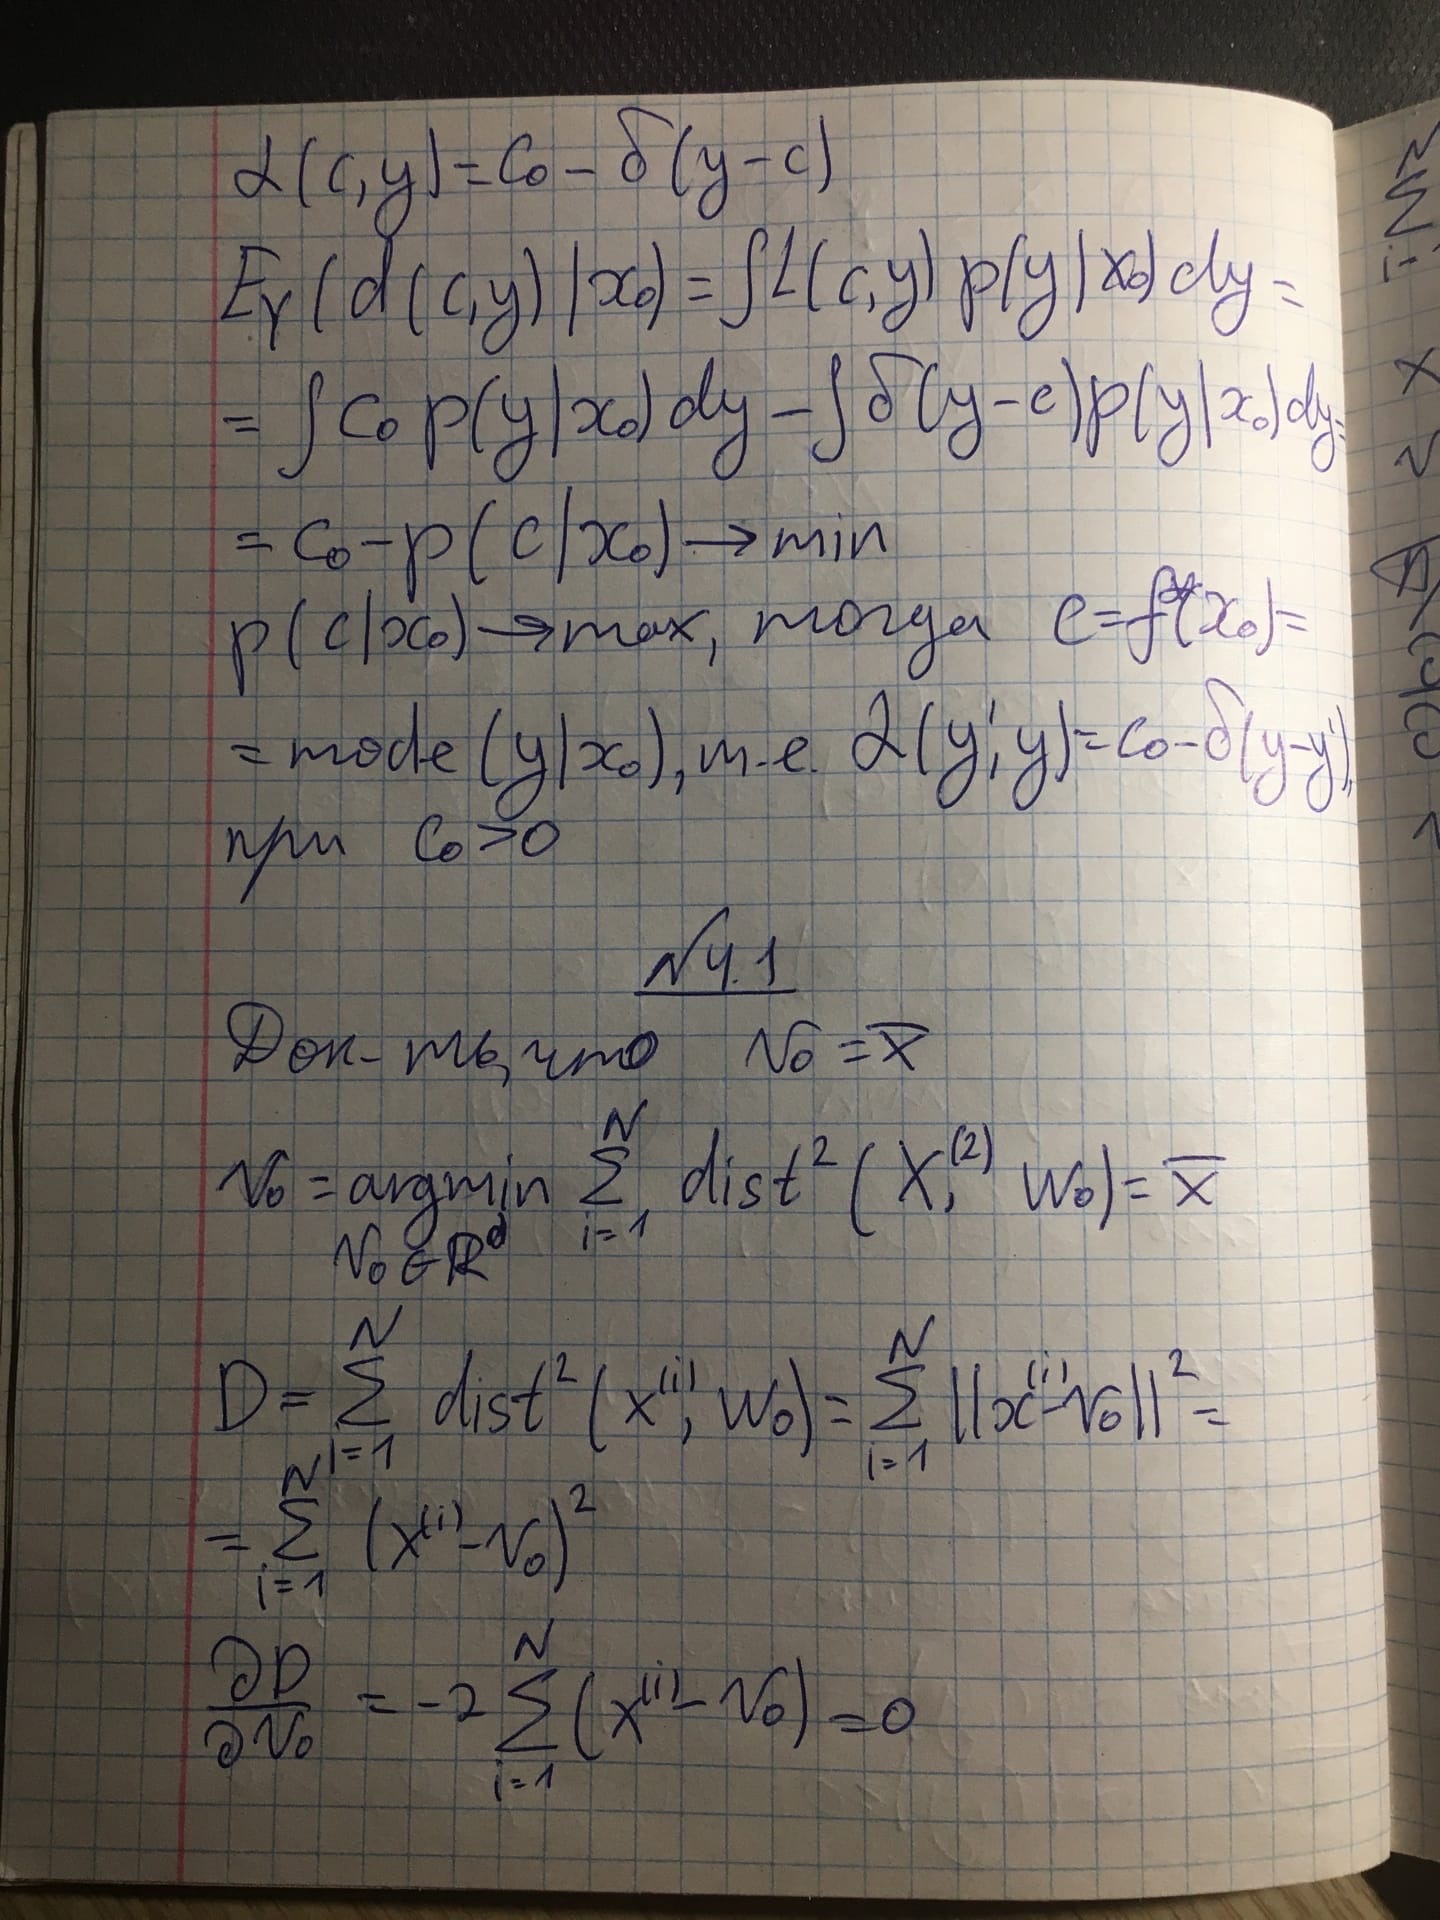 L(c,y)=c₀-δ(y-c)
E_Y(d(c,y)|x₀)=∫L(c,y)p(y|x₀)dy=
=∫c₀p(y|x₀)dy-∫δ(y-c)p(y|x₀)dy=
=c₀-p(c|x₀)→min
p(c|x₀)→max, тогда c=f*(x₀)=
=mode(y|x₀), т.е. L(y',y)=c₀-δ(y-y'),
при c₀>0
N4.1
Док-ть, что V₀=x̅
V₀=argmin Σ dist²(X,⁽²⁾ W₀)=x̅
V₀∈ℝᵈ i=1 N
D=Σ_{i=1}^{N} dist²(x⁽ⁱ⁾, W₀)=Σ_{i=1}^{N}||x⁽ⁱ⁾-V₀||²=
=Σ_{i=1}^{N}(x⁽ⁱ⁾-V₀)²
∂D/∂V₀=-2Σ_{i=1}^{N}(x⁽ⁱ⁾-V₀)=0